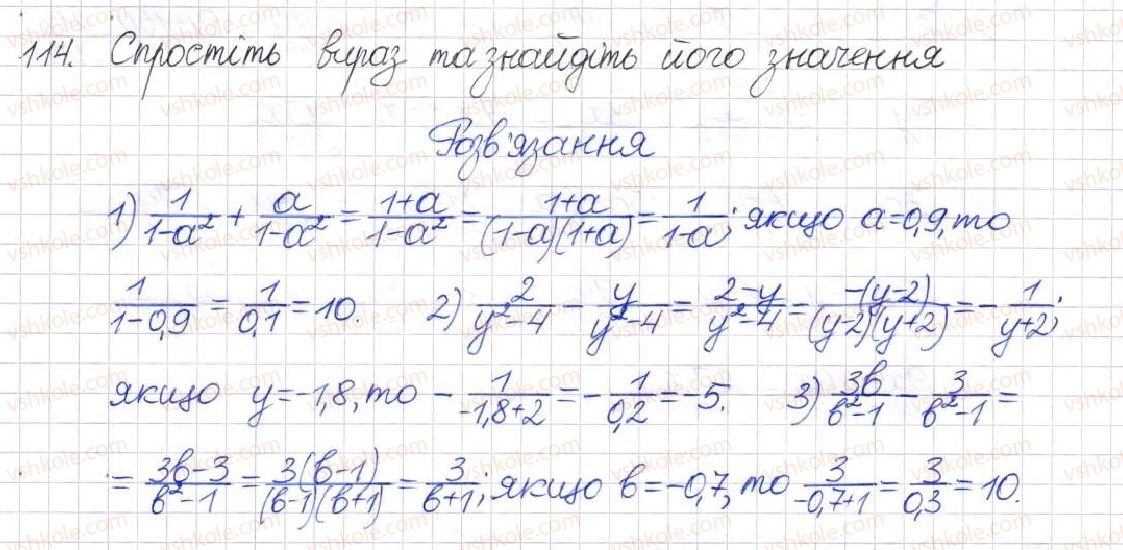 114. Спростіть вираз та знайдіть його значення
Розв'язання
1) 1/(1-a²) + a/(1-a²) = (1+a)/(1-a²) = (1+a)/((1-a)(1+a)) = 1/(1-a); якщо a=0,9, то
1/(1-0,9) = 1/0,1 = 10. 2) 2/(y²-4) - y/(y²-4) = (2-y)/(y²-4) = -(y-2)/((y-2)(y+2)) = -1/(y+2);
якщо y=-1,8, то -1/(-1,8+2) = -1/0,2 = -5. 3) 3b/(b²-1) - 3/(b²-1) =
= (3b-3)/(b²-1) = 3(b-1)/((b-1)(b+1)) = 3/(b+1); якщо b=-0,7, то 3/(-0,7+1) = 3/0,3 = 10.
vshkole.com